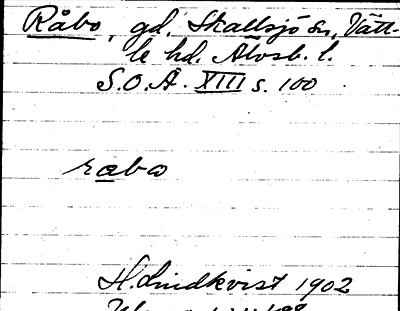 Råbo, gd. Skallsjö sn, Vätt-
le hd. Älvsb. l.
S.O.Ä. XIII s. 100
rabo
H. Lindkvist 1902